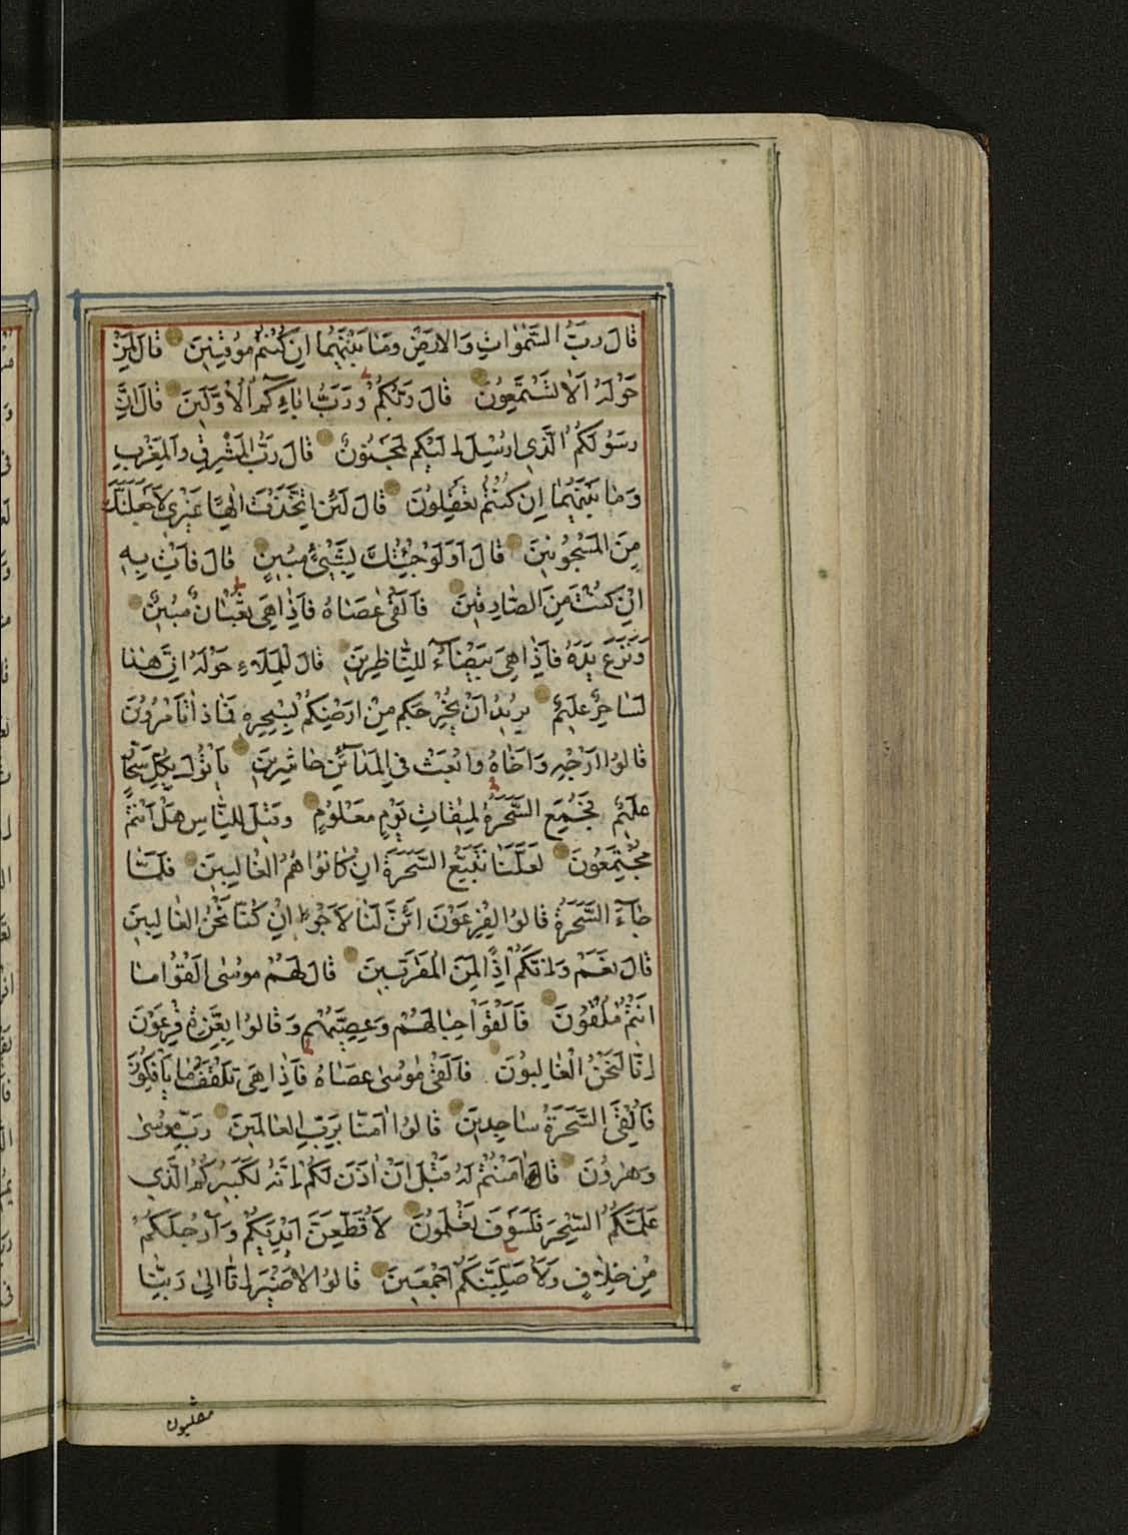 قَالَ رَبُّ السَّمٰوَاتِ وَالْاَرْضِ وَمَا بَيْنَهُمَا اِنْ كُنْتُمْ مُوقِنِينَ قَالَ لِمَنْ
حَوْلَهُ اَلَا تَسْتَمِعُونَ قَالَ رَبُّكُمْ وَرَبُّ اٰبَآئِكُمُ الْاَوَّلِينَ قَالَ اِنَّ
رَسُولَكُمُ الَّذِي اُرْسِلَ اِلَيْكُمْ لَمَجْنُونٌ قَالَ رَبُّ الْمَشْرِقِ وَالْمَغْرِبِ
وَمَا بَيْنَهُمَا اِنْ كُنْتُمْ تَعْقِلُونَ قَالَ لَئِنِ اتَّخَذْتَ اِلٰهًا غَيْرِي لَاَجْعَلَنَّكَ
مِنَ الْمَسْجُونِينَ قَالَ اَوَلَوْ جِئْتُكَ بِشَيْءٍ مُبِينٍ قَالَ فَأْتِ بِهِ
اِنْ كُنْتَ مِنَ الصَّادِقِينَ فَاَلْقٰى عَصَاهُ فَاِذَا هِيَ ثُعْبَانٌ مُبِينٌ
وَنَزَعَ يَدَهُ فَاِذَا هِيَ بَيْضَآءُ لِلنَّاظِرِينَ قَالَ لِلْمَلَاءِ حَوْلَهُ اِنَّ هٰذَا
لَسَاحِرٌ عَلِيمٌ يُرِيدُ اَنْ يُخْرِجَكُمْ مِنْ اَرْضِكُمْ بِسِحْرِهِ فَمَاذَا تَأْمُرُونَ
قَالُوا اَرْجِهِ وَاَخَاهُ وَابْعَثْ فِي الْمَدَآئِنِ حَاشِرِينَ يَأْتُوكَ بِكُلِّ سَحَّارٍ
عَلِيمٍ فَجُمِعَ السَّحَرَةُ لِمِيقَاتِ يَوْمٍ مَعْلُومٍ وَقِيلَ لِلنَّاسِ هَلْ اَنْتُمْ
مُجْتَمِعُونَ لَعَلَّنَا نَتَّبِعُ السَّحَرَةَ اِنْ كَانُوا هُمُ الْغَالِبِينَ فَلَمَّا
جَآءَ السَّحَرَةُ قَالُوا لِفِرْعَوْنَ اَئِنَّ لَنَا لَاَجْرًا اِنْ كُنَّا نَحْنُ الْغَالِبِينَ
قَالَ نَعَمْ وَاِنَّكُمْ اِذًا لَمِنَ الْمُقَرَّبِينَ قَالَ لَهُمْ مُوسٰى اَلْقُوا مَا
اَنْتُمْ مُلْقُونَ فَاَلْقَوْا حِبَالَهُمْ وَعِصِيَّهُمْ وَقَالُوا بِعِزَّةِ فِرْعَوْنَ
اِنَّا لَنَحْنُ الْغَالِبُونَ فَاَلْقٰى مُوسٰى عَصَاهُ فَاِذَا هِيَ تَلْقَفُ مَا يَأْفِكُونَ
فَاُلْقِيَ السَّحَرَةُ سَاجِدِينَ قَالُوا اٰمَنَّا بِرَبِّ الْعَالَمِينَ رَبِّ مُوسٰى
وَهٰرُونَ قَالَ اٰمَنْتُمْ لَهُ قَبْلَ اَنْ اٰذَنَ لَكُمْ اِنَّهُ لَكَبِيرُكُمُ الَّذِي
عَلَّمَكُمُ السِّحْرَ فَلَسَوْفَ تَعْلَمُونَ لَاُقَطِّعَنَّ اَيْدِيَكُمْ وَاَرْجُلَكُمْ
مِنْ خِلَافٍ وَلَاُصَلِّبَنَّكُمْ اَجْمَعِينَ قَالُوا لَا ضَيْرَ اِنَّا اِلٰى رَبِّنَا
منقلبون